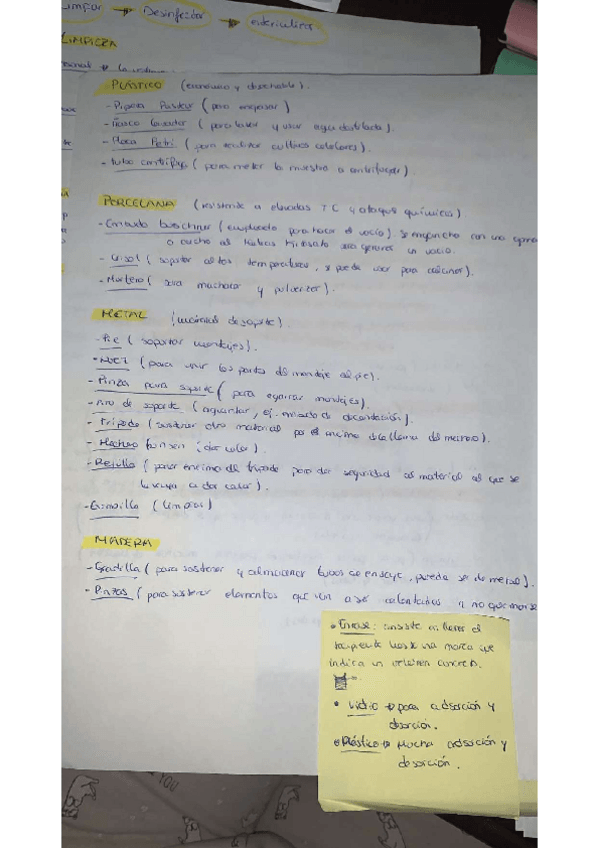 Limpiar → Desinfectar → esterilizar
LIMPIEZA
PLÁSTICO (económico y desechable).
- Pipeta Pasteur (para enrasar)
- Frasco lavador (para lavar y usar agua destilada).
- Placa Petri (para realizar cultivos celulares).
- tubo centrífuga (para meter la muestra a centrifugar).
PORCELANA (resistente a elevadas T C y ataques químicos)
- Embudo buschner (empleado para hacer el vacío). Se engancha con una goma
o caucho al Matraz Kitasato para generar un vacío.
- Crisol (soportar altas temperaturas, se puede usar para calcinar).
- Mortero (para machacar y pulverizar).
METAL (materiales de soporte).
- Pie (soportar montajes).
- Nuez (para unir las partes del montaje al pie).
- Pinza para soporte (para agarrar montajes).
- Aro de soporte (aguantar, ej. embudo de decantación).
- Trípode (sostener otro material por el encima de la llama del mechero).
- Mechero bunsen (dar calor).
- Rejilla (poner encima del trípode para dar seguridad al material al que se
le vaya a dar calor).
- Escobilla (limpiar)
MADERA
- Gradilla (para sostener y almacenar tubos de ensayo, puede ser de metal).
- Pinzas (para sostener elementos que van a ser calentados y no quemarse
• Enrase: consiste en llenar el
recipiente hasta una marca que
indica un volumen concreto.
• Vidrio → para adsorción y
desorción.
• Plástico → Mucha adsorción y
desorción.